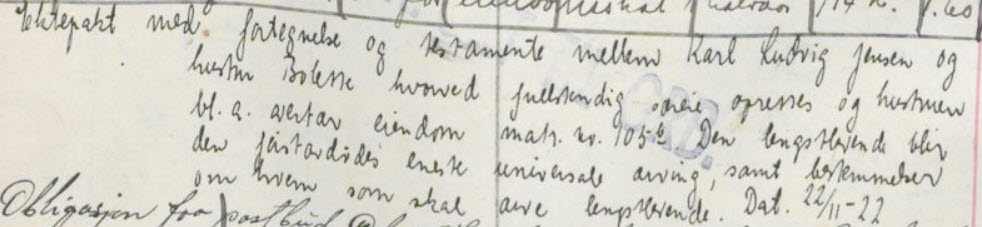 for eiendomsskat 1 halvaar 1/14 k. 1.60
Ektepakt med fortegnelse og testamente mellem Karl Ludvig Jensen og
hustru Bolette hvorved fullstendig særeie oprettes og hustruen
bl. a. overtar eiendom matr. nr. 105b Den lengstlevende blir
den førstavdødes eneste universale arving, samt bestemmelser
om hvem som skal arve lengstlevende. Dat. 22/11-22
Obligasjon fra postbud